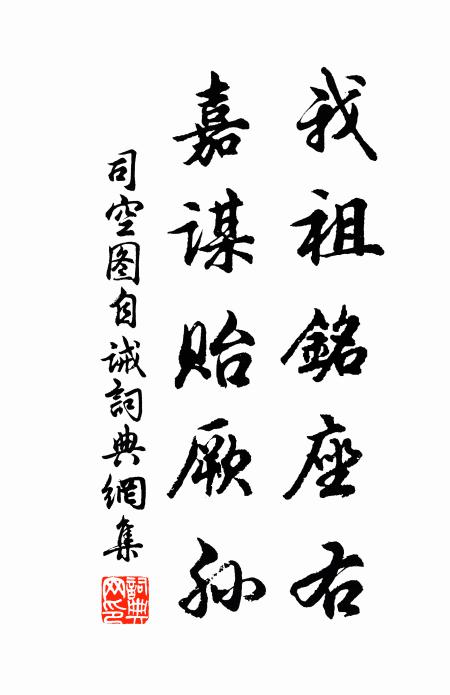 我祖銘座右
嘉谋贻厥孫
司空图自诫詞典網集
詞典网印